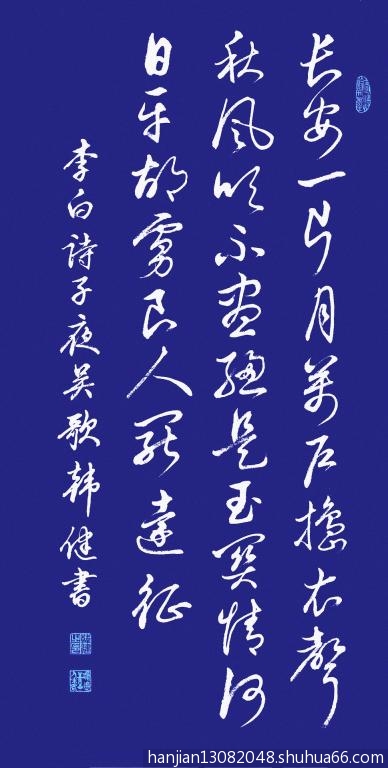 长安一片月萬户擣衣聲
秋風吹不盡總是玉関情何
日平胡虜良人罷遠征
李白詩子夜吴歌韩健書
hanjian13082048.shuhua66.com